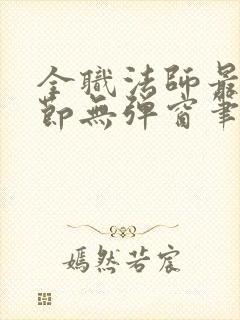 全職法師最
節無彈窗筆
嫣然若宸